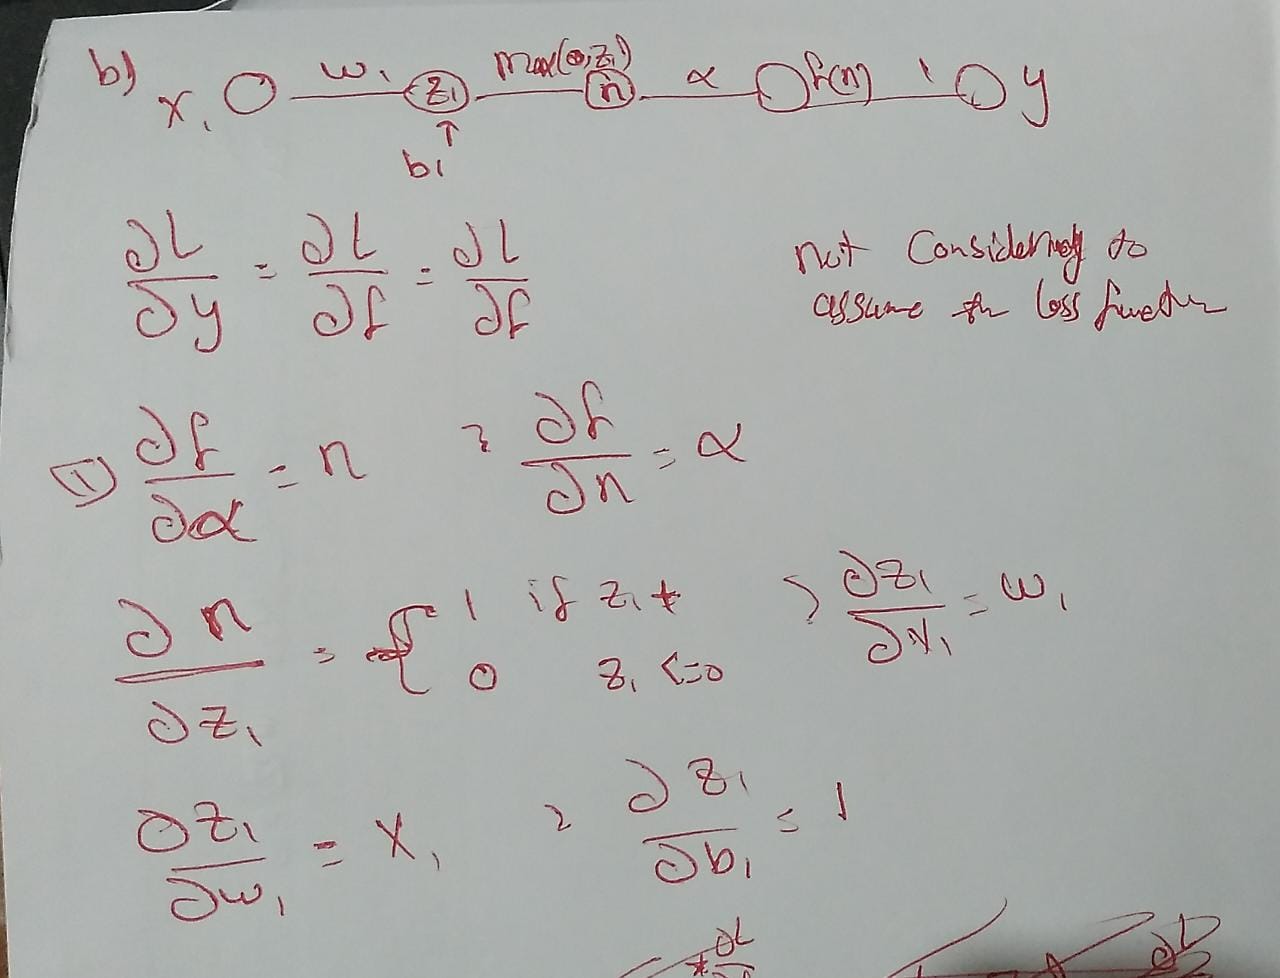 b)
x₁ w₁ z₁ max(0,z₁) n α f(n) 1 y
b₁
∂L/∂y = ∂L/∂f = ∂L/∂f
not Considering to
assume the loss function
① ∂f/∂α = n , ∂f/∂n = α
∂n/∂z₁ = { 1 if z₁ +
0 z₁ <=0
, ∂z₁/∂x₁ = w₁
∂z₁/∂w₁ = x₁ , ∂z₁/∂b₁ = 1